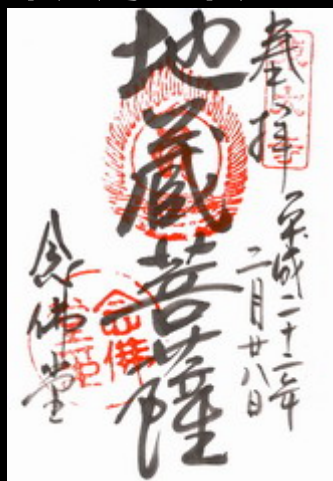 奉拝
平成二十二年
二月廿八日
地蔵菩薩
念佛堂